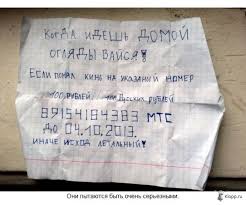 КОГДА ИДЕШЬ ДОМОЙ
ОГЛЯДЫВАЙСЯ!
ЕСЛИ НА УКАЗАНЫЙ НОМЕР
100 РУБЛЕЙ РУБЛЕЙ
89154184383 МТС
ДО 04.10.2013.
ИНАЧЕ ИСХОД ЛЕТАЛЬНЫЙ!
Они пытаются быть очень серьезными.
klopp.ru